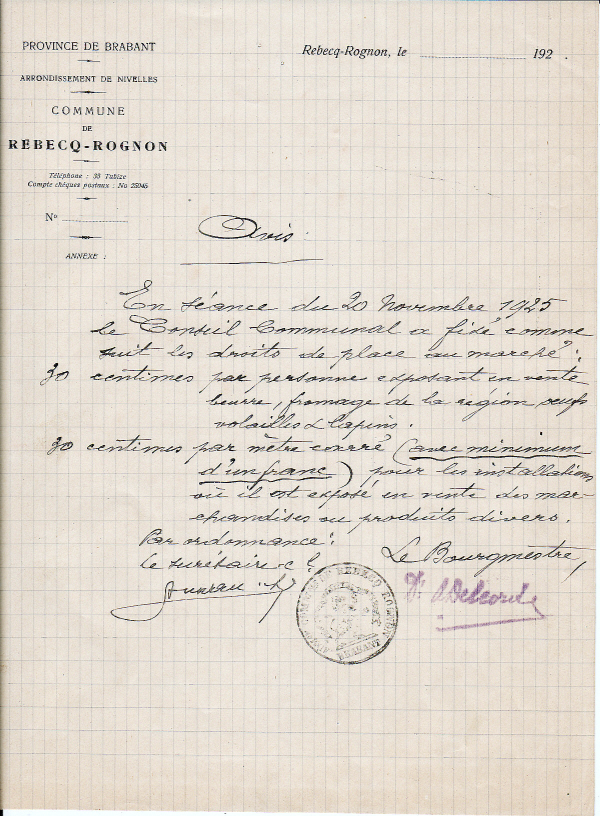 PROVINCE DE BRABANT
ARRONDISSEMENT DE NIVELLES
COMMUNE
DE
REBECQ-ROGNON
Téléphone : 33 Tubize
Compte chèques postaux : No 25945
N°
ANNEXE :
Rebecq-Rognon, le 192 .
Avis :
En séance du 20 Novembre 1925
le Conseil Communal a fixé comme
suit les droits de place au marché :
30 centimes par personne exposant en vente
beurre, fromage de la région, œufs
volailles & lapins.
30 centimes par mètre carré (avec minimum
d'un franc) pour les installations
où il est exposé en vente des mar-
chandises ou produits divers.
Par ordonnance :
Le Bourgmestre,
le secrétaire c
COMMUNE DE REBECQ-ROGNON
BRABANT